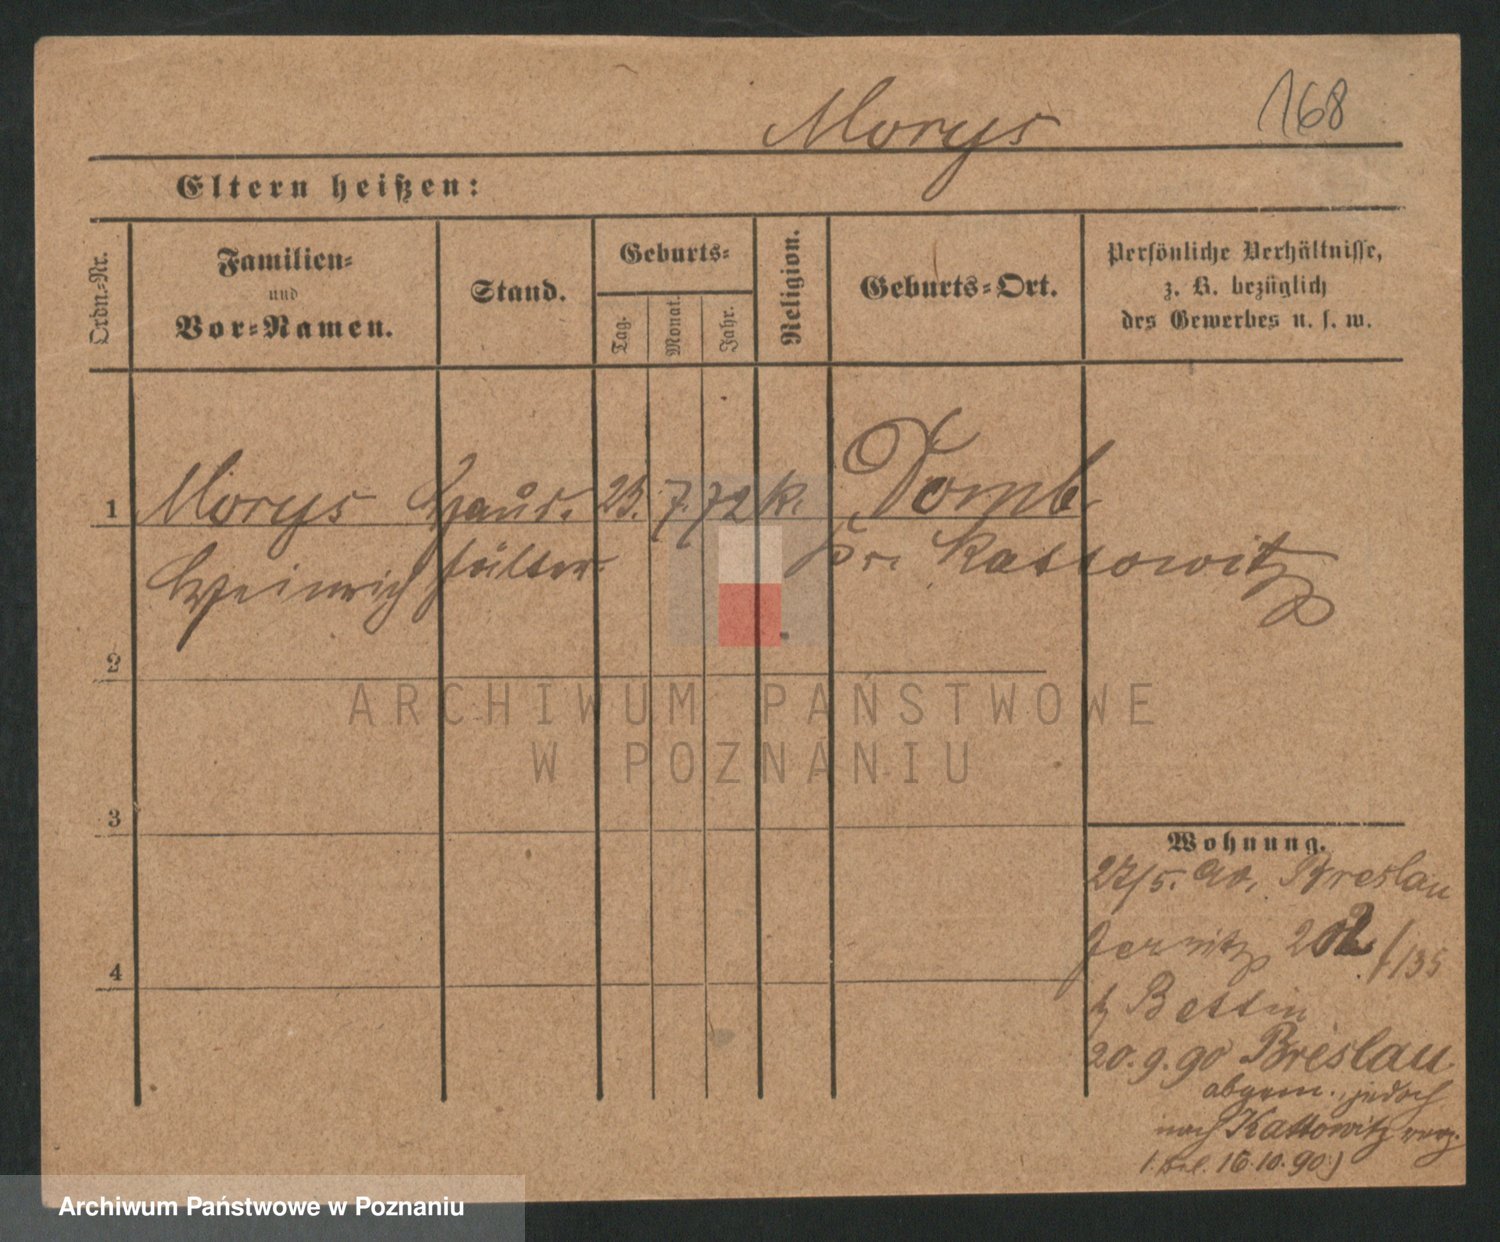 Morys
168
Eltern heißen:
Ordn.-Nr.
Familien-
und
Vor-Namen.
Stand.
Geburts-
Tag.
Monat.
Jahr.
Religion.
Geburts-Ort.
Persönliche Verhältnisse,
z. B. bezüglich
des Gewerbes u. s. w.
1 Morys Haus- 23. 7. 72 k. Domb
Heinrich hälter. Kr. Kattowitz
2
3
4
Wohnung.
27/5. 90. Breslau
Jersitz 202./135
b/ Bettin
20.9.90 Breslau
abgem., jedoch
nach Kattowitz verz.
16.10.90.)
ARCHIWUM PAŃSTWOWE
W POZNANIU
Archiwum Państwowe w Poznaniu